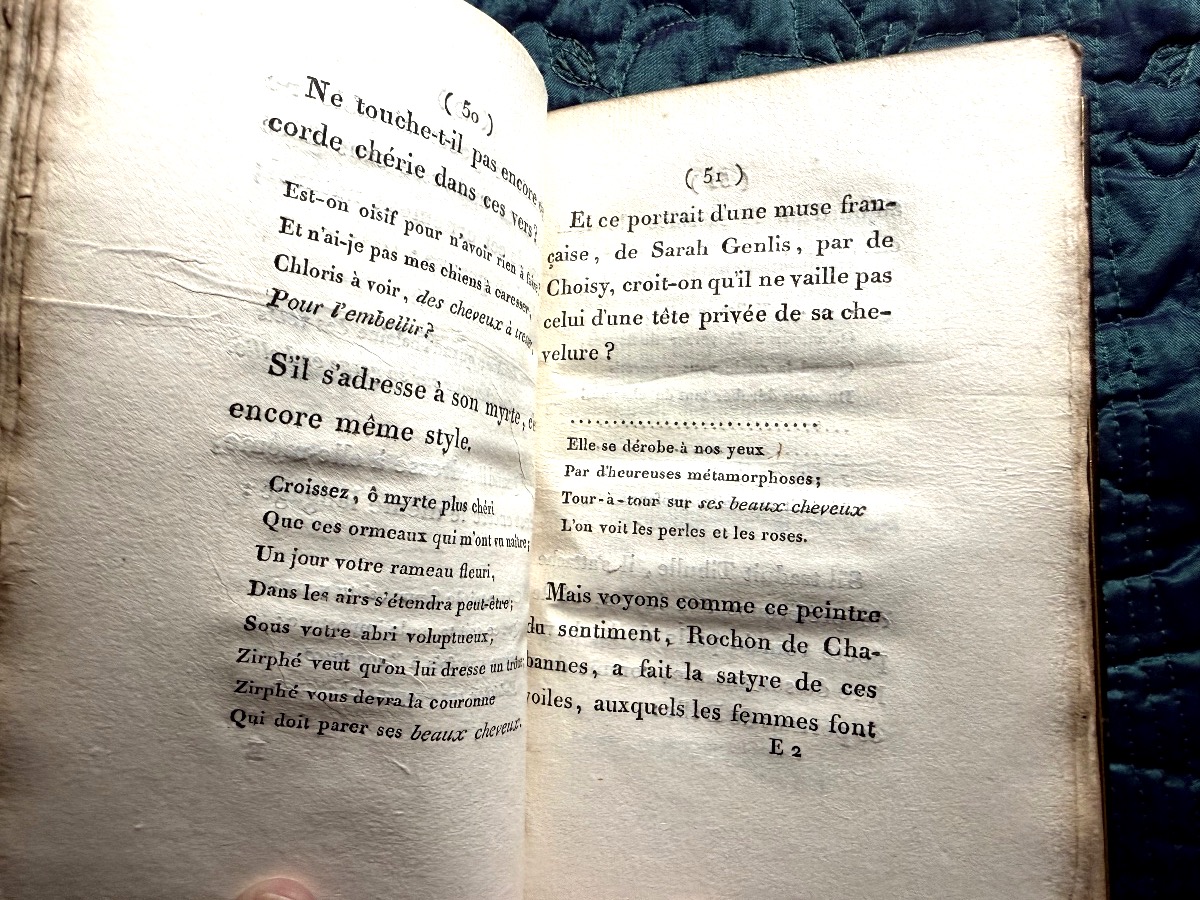 ( 50 )
Ne touche-t-il pas encore
corde chérie dans ces vers?
Est-on oisif pour n'avoir rien à faire,
Et n'ai-je pas mes chiens à caresser,
Chloris à voir, des cheveux à tresser,
Pour l'embellir?
S'il s'adresse à son myrte,
encore même style.
Croissez, ô myrte plus chéri
Que ces ormeaux qui m'ont vu naître;
Un jour votre rameau fleuri,
Dans les airs s'étendra peut-être;
Sous votre abri voluptueux,
Zirphé veut qu'on lui dresse un trône;
Zirphé vous devra la couronne
Qui doit parer ses beaux cheveux.
( 51 )
Et ce portrait d'une muse fran-
çaise, de Sarah Genlis, par de
Choisy, croit-on qu'il ne vaille pas
celui d'une tête privée de sa che-
velure ?
............................
Elle se dérobe à nos yeux
Par d'heureuses métamorphoses;
Tour-à-tour sur ses beaux cheveux
L'on voit les perles et les roses.
Mais voyons comme ce peintre
du sentiment, Rochon de Cha-
bannes, a fait la satyre de ces
voiles, auxquels les femmes font
E 2